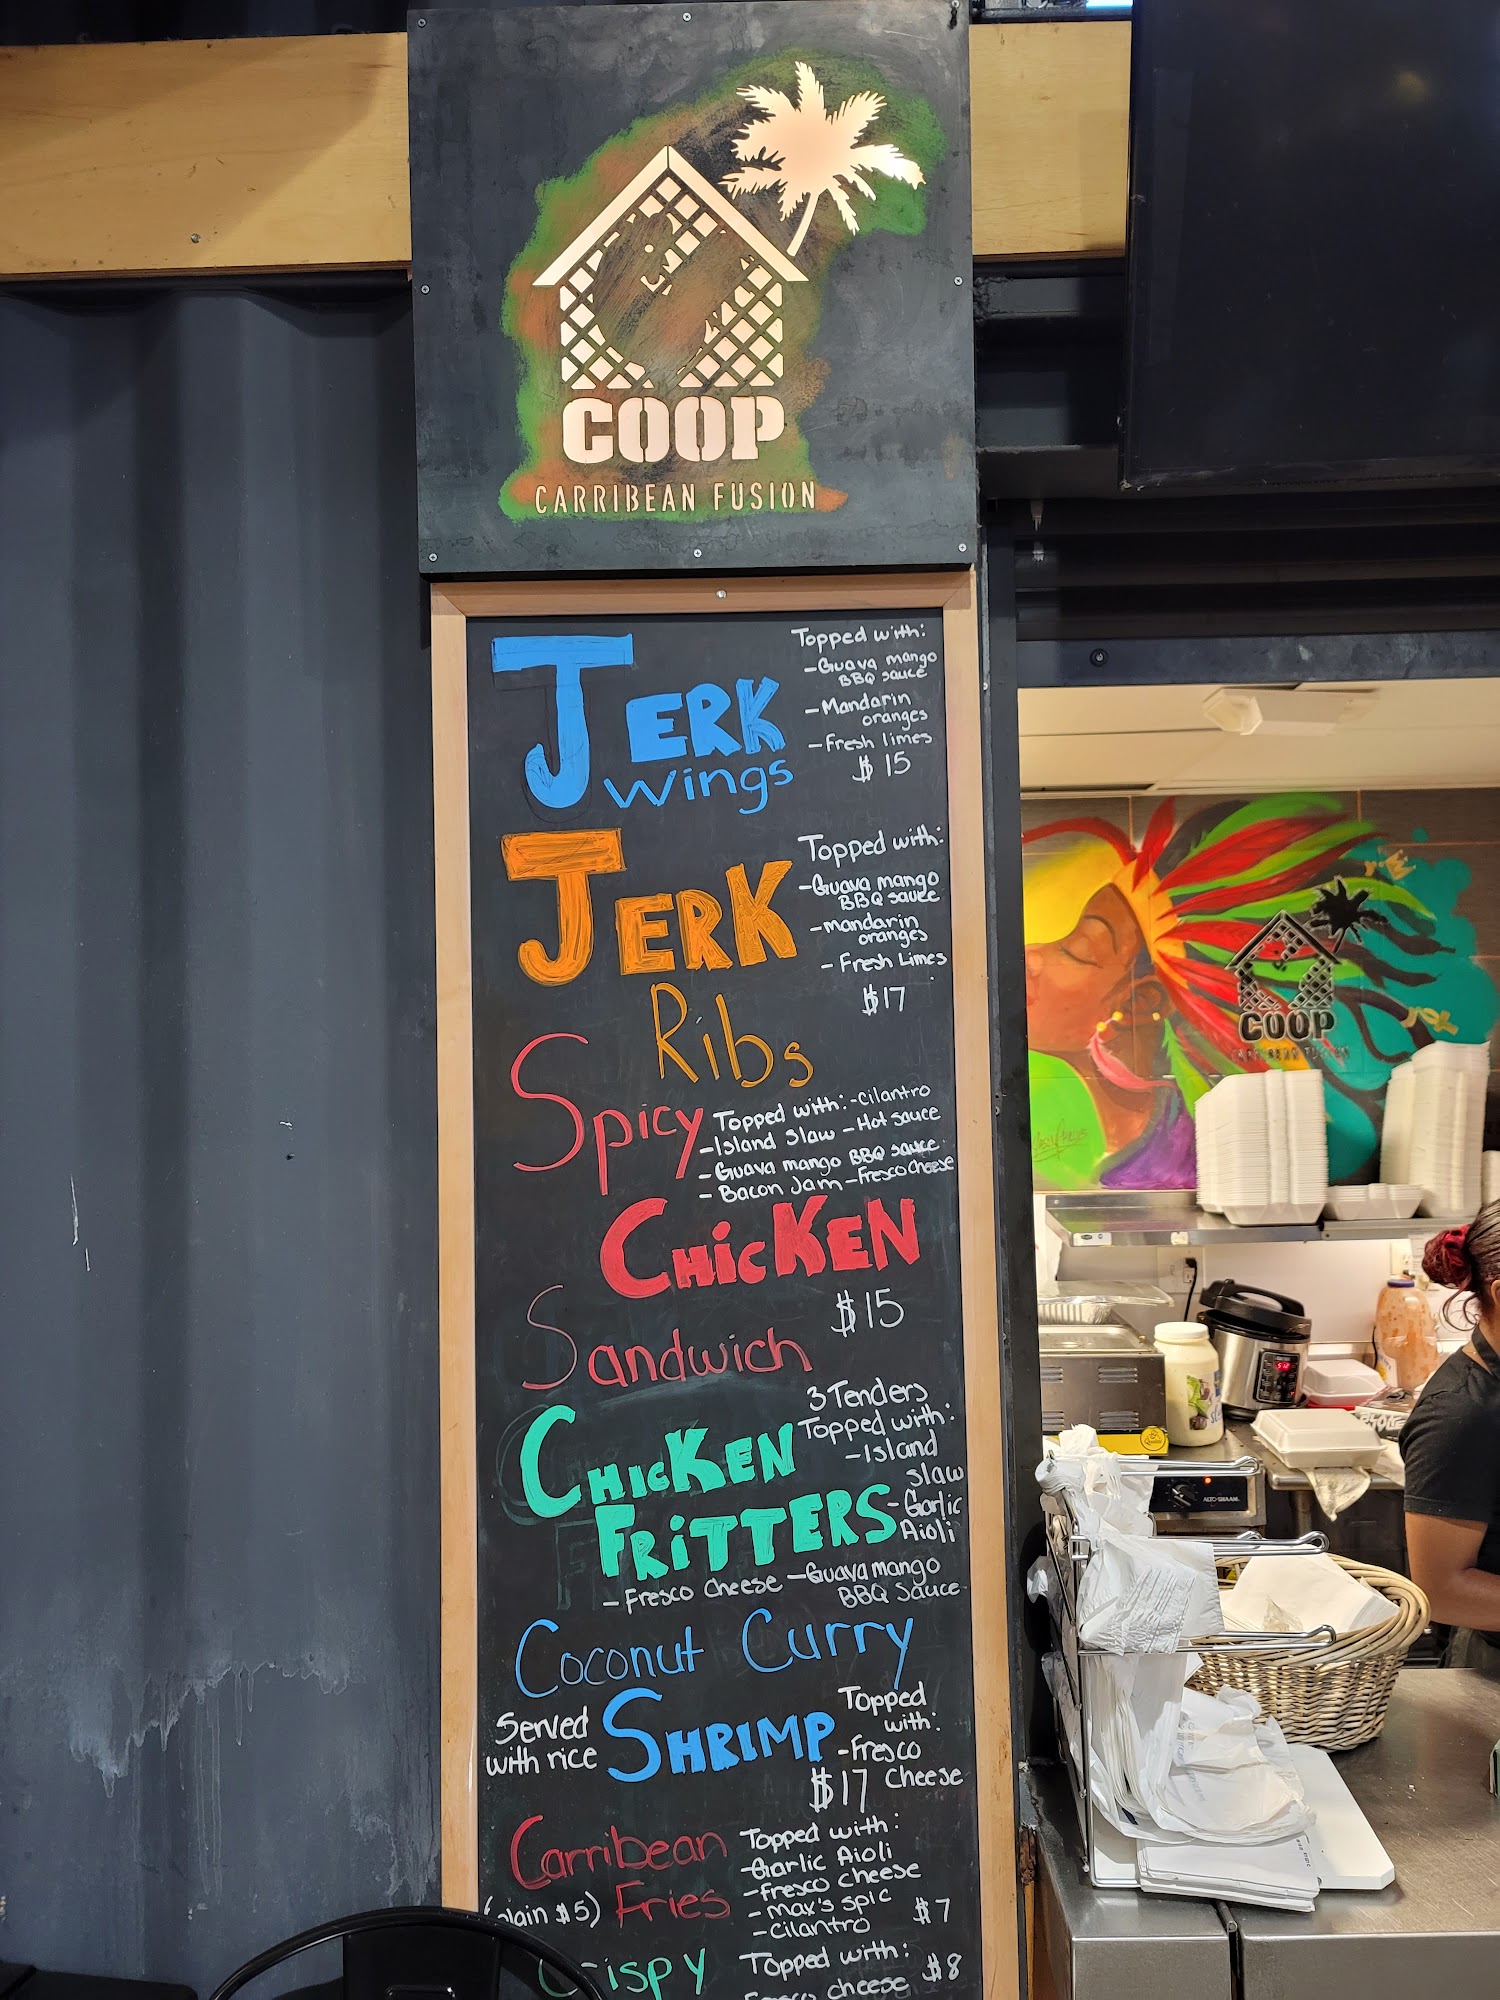 COOP
CARRIBEAN FUSION
JERK
Wings
Topped with:
-Guava mango
BBQ sauce
-Mandarin
oranges
-Fresh limes
$15
JERK
Ribs
Topped with:
-Guava mango
BBQ sauce
-mandarin
oranges
- Fresh Limes
$17
Spicy
Topped with: -cilantro
-Island Slaw -Hot sauce
-Guava mango BBQ sauce
- Bacon Jam -Fresco cheese
CHICKEN
Sandwich
$15
CHICKEN
FRITTERS
3 Tenders
Topped with:
-Island
slaw
-Garlic
Aioli
-Fresco cheese -Guava mango
BBQ Sauce
Coconut Curry
Served
with rice
SHRIMP
Topped
with:
-Fresco
Cheese
$17
Carribean
Fries
(plain $5)
Topped with:
-Garlic Aioli
-fresco cheese
- max's spic
-cilantro
$7
Crispy
Topped with:
$8
Fresco cheese
COOP
ALTO-SHAAM